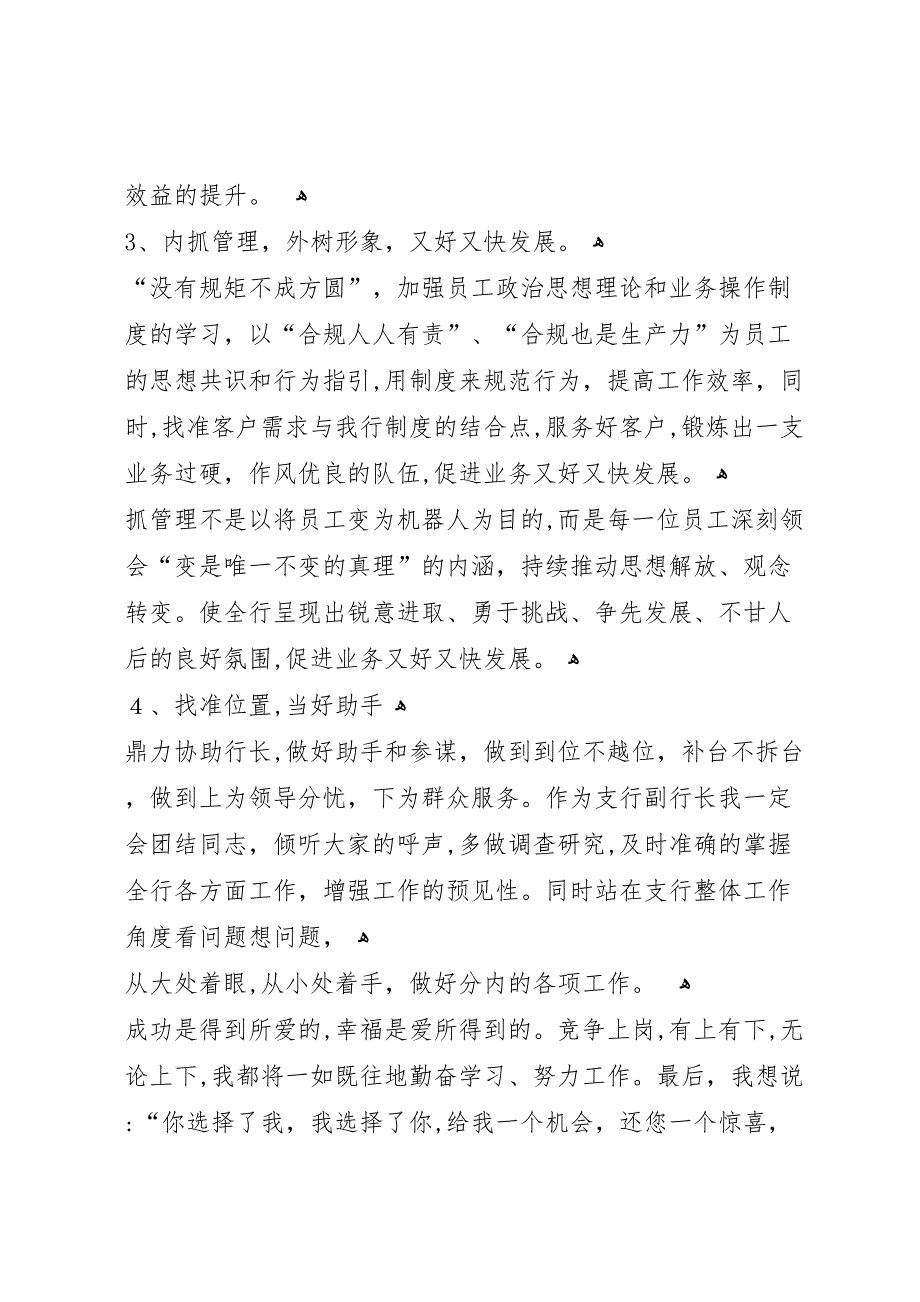 效益的提升。 ﻫ
3、内抓管理，外树形象，又好又快发展。 ﻫ
“没有规矩不成方圆”，加强员工政治思想理论和业务操作制
度的学习，以“合规人人有责”、“合规也是生产力”为员工
的思想共识和行为指引,用制度来规范行为，提高工作效率，同
时,找准客户需求与我行制度的结合点,服务好客户,锻炼出一支
业务过硬，作风优良的队伍,促进业务又好又快发展。 ﻫ
抓管理不是以将员工变为机器人为目的,而是每一位员工深刻领
会“变是唯一不变的真理”的内涵，持续推动思想解放、观念
转变。使全行呈现出锐意进取、勇于挑战、争先发展、不甘人
后的良好氛围,促进业务又好又快发展。 ﻫ
４、找准位置,当好助手 ﻫ
鼎力协助行长,做好助手和参谋，做到到位不越位，补台不拆台
，做到上为领导分忧，下为群众服务。作为支行副行长我一定
会团结同志，倾听大家的呼声,多做调查研究,及时准确的掌握
全行各方面工作，增强工作的预见性。同时站在支行整体工作
角度看问题想问题， ﻫ
从大处着眼,从小处着手，做好分内的各项工作。 ﻫ
成功是得到所爱的,幸福是爱所得到的。竞争上岗,有上有下,无
论上下,我都将一如既往地勤奋学习、努力工作。最后，我想说
:“你选择了我，我选择了你,给我一个机会，还您一个惊喜，